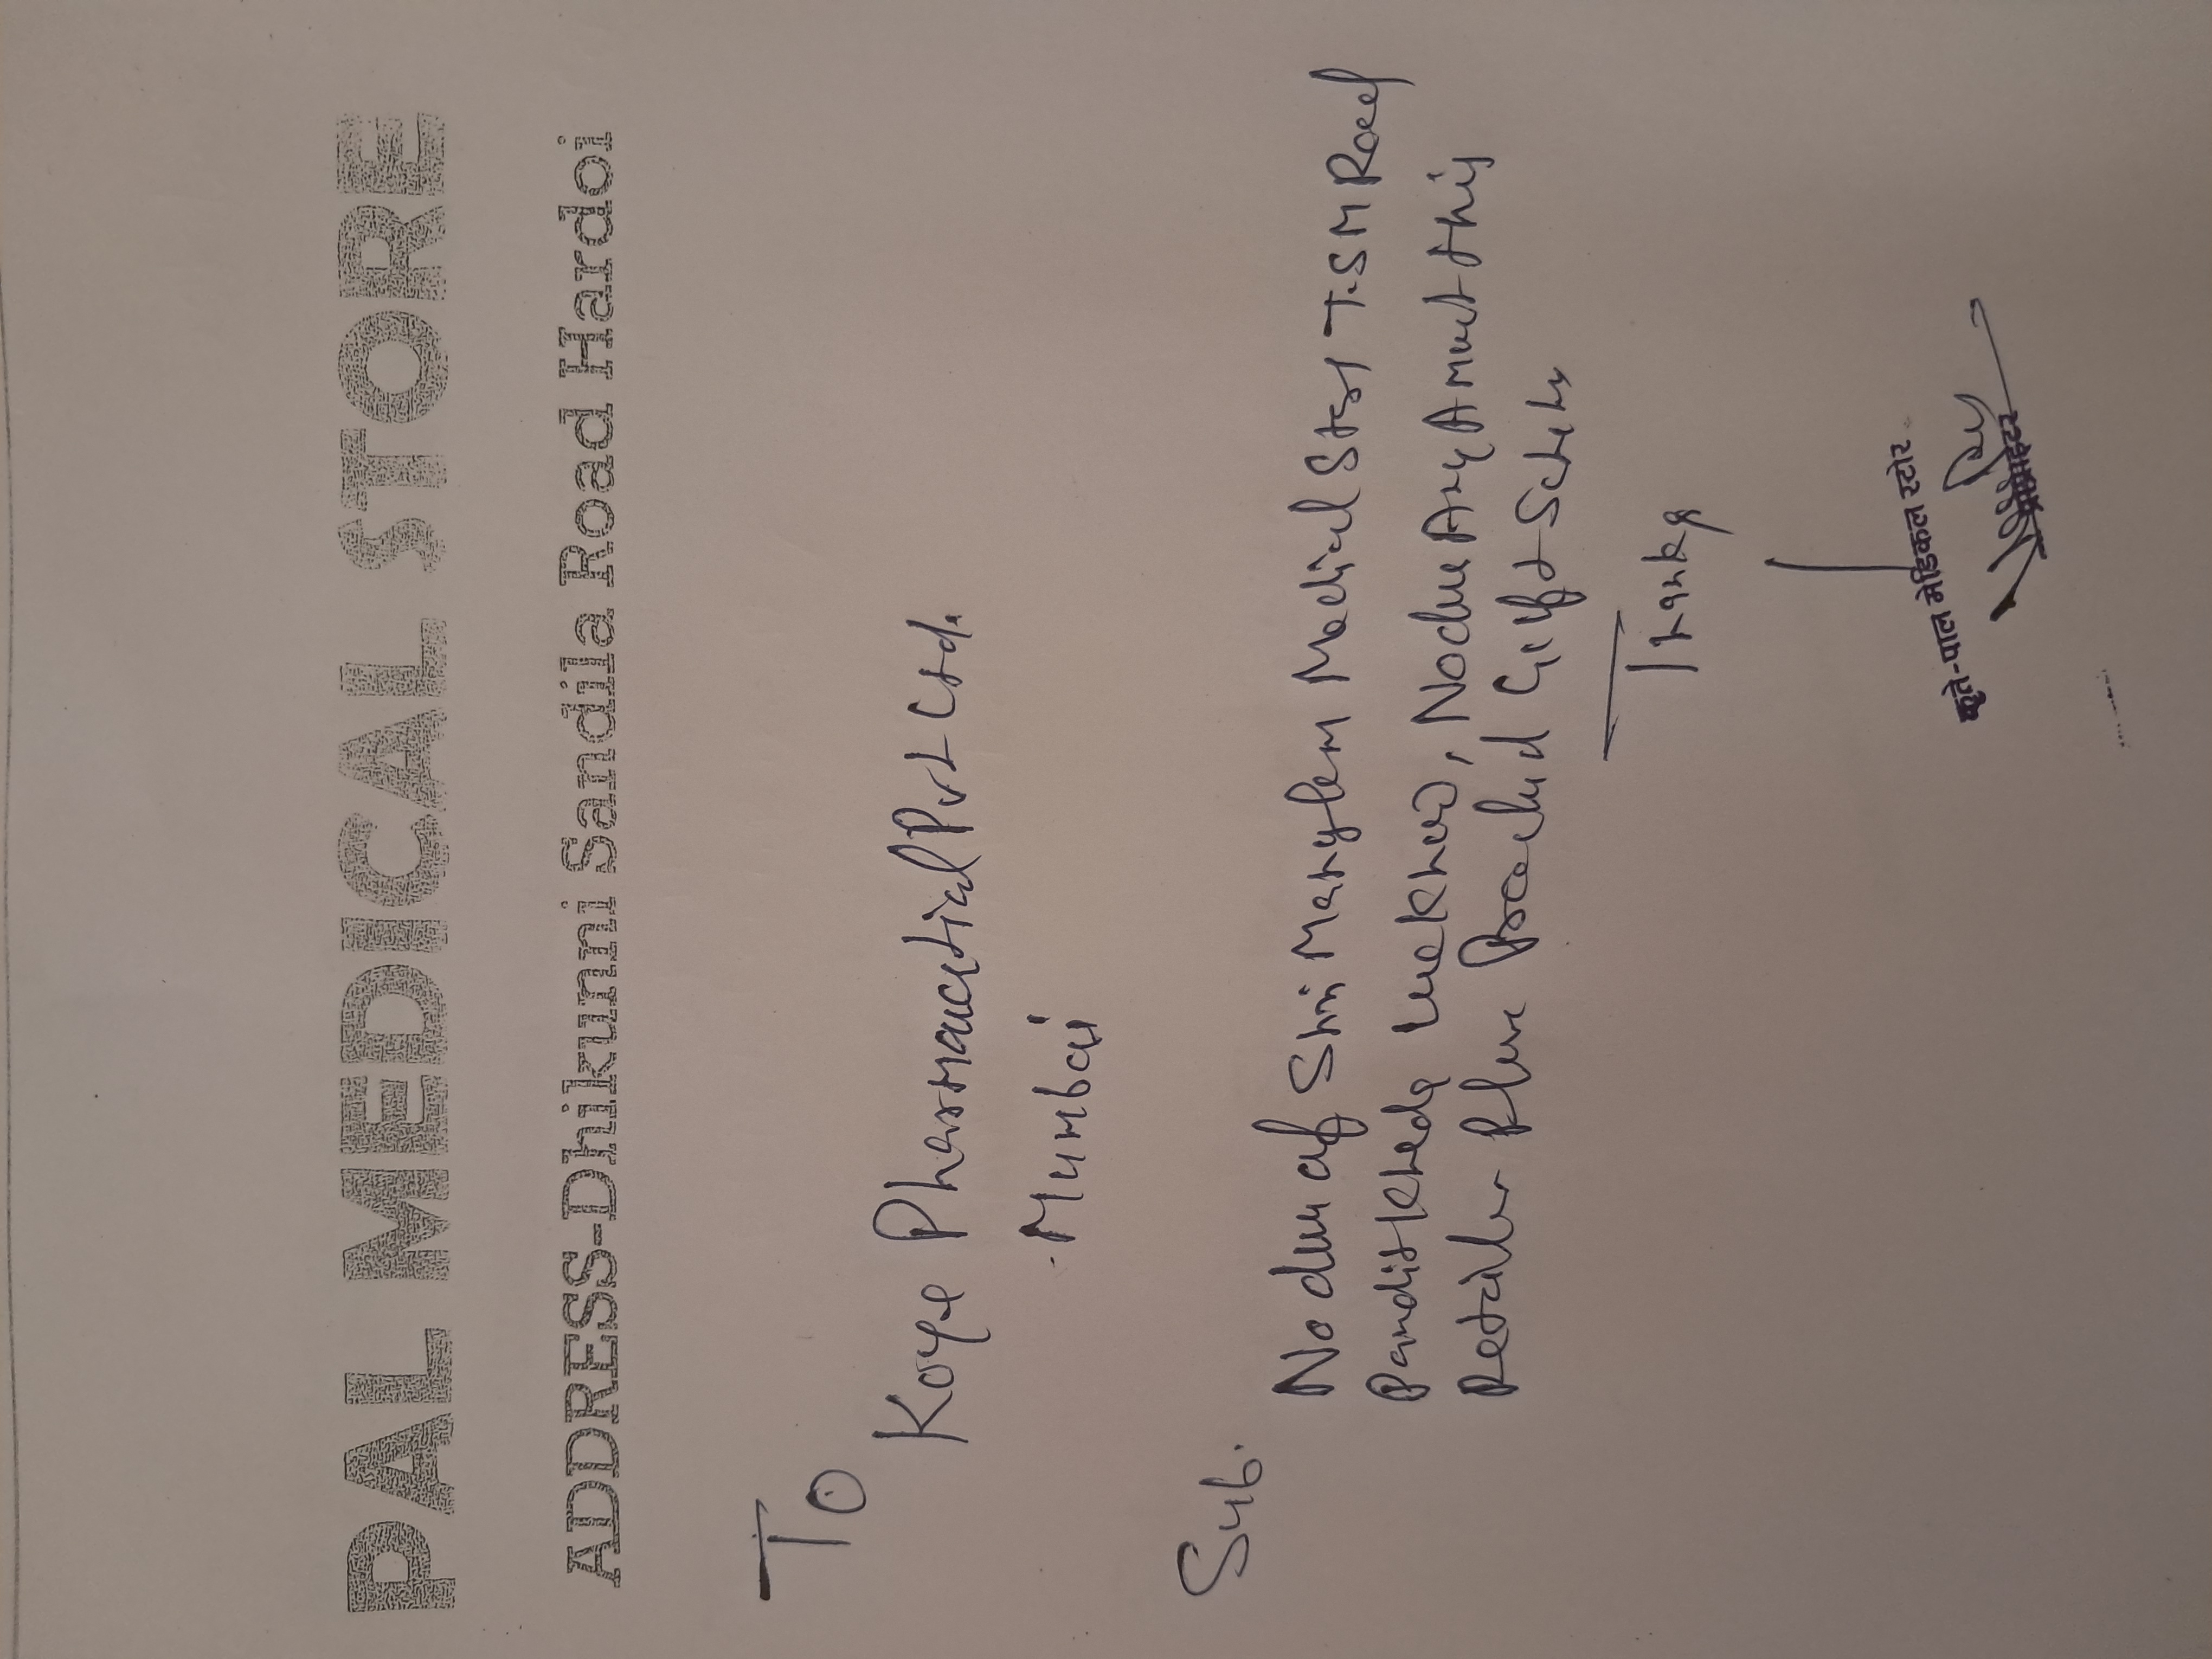 PAL MEDICAL STORE
ADDRESS-Dhikunni Sandila Road Hardoi
To
Koye Pharmauctical Pvt Ltd.
Mumbai
Sub.
No dues of Shri Medical Store T.S M Road
Pandit Kheda Lucknow, No due Any Amunt this
Retailer Gift Scheme
Thanks
कृते-पाल मेडिकल स्टोर
प्रोप्राइटर